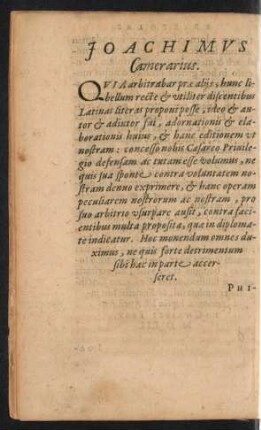 JOACHIMVS
Camerarius.
QVIA arbitrabar præ alijs, hunc li-
bellum recte & utiliter discentibus
Latinas literas proponi posse, ideo & au-
tor & adiutor fui, adornationis & ela-
borationis huius, & hanc editionem ut
nostram: concesso nobis Cæsareo Priuile-
gio defensam ac tutam esse volumus, ne
quis sua sponte contra voluntatem no-
stram denuo exprimere, & hanc operam
peculiarem nostrorum ac nostram, pro
suo arbitrio vsurpare ausit, contra faci-
entibus multa proposita, quæ in diploma-
te indicatur. Hoc monendum omnes du-
ximus, ne quis forte detrimentum
sibi hac in parte accer-
seret.
PHI-